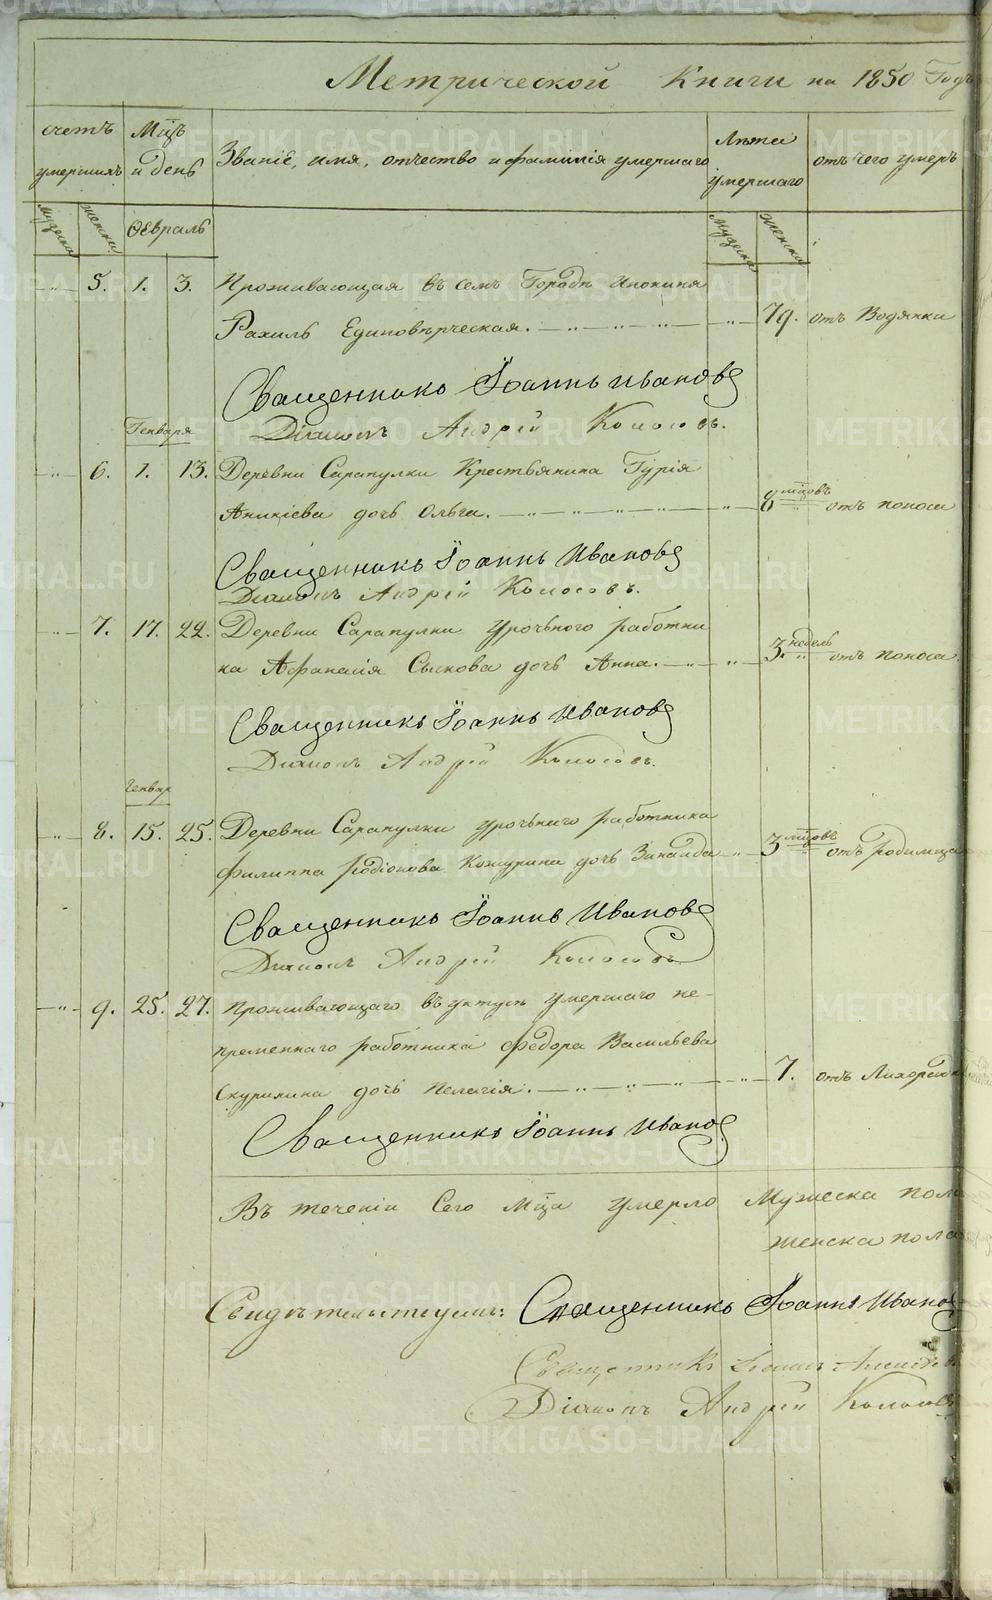 Метрической Книги на 1850 Годъ
счетъ умершихъ
Мцъ и день
Званіе, имя, отчество и фамилія умершаго
Лѣта умершаго
отъ чего умеръ
мужеска
женска
Февраль
мужеска
женска
5. 1. 3. Проживающая въ семъ Городѣ Инокиня
Рахиль Единовѣрческая. 79. отъ Водянки
Священникъ Іоаннъ Ивановъ
Діаконъ Андрей Колосовъ.
Генваря
6. 1. 13. Деревни Сарапулки Крестьянина Гурія
Аникіева дочь Ольга. 8 мцовъ отъ поноса
Священникъ Іоаннъ Ивановъ
Діаконъ Андрей Колосовъ.
7. 17. 22. Деревни Сарапулки урочнаго работни
ка Афанасія Сыкова дочь Анна. 3. недель отъ поноса.
Священникъ Іоаннъ Ивановъ
Діаконъ Андрей Колосовъ.
Генвар
8. 15. 25. Деревни Сарапулки урочнаго работника
Филиппа Родіонова Кожурина дочь Зинаида 3 мцовъ отъ родимца
Священникъ Іоаннъ Ивановъ
Діаконъ Андрей Колосовъ
9. 25. 27. Проживающаго въ уктусѣ умершаго не-
пременнаго работника Федора Васильева
Скурихина дочь Пелагія. 7. отъ Лихорадк
Священникъ Іоаннъ Ивановъ
Въ теченіи Сего Мца умерло Мужеска пола
женска пола
Свидѣтельствуемъ: Священникъ Іоаннъ Иванов
Священникъ Іоаннъ
Діаконъ Андрей Колосов
METRIKI.GASO-URAL.RU